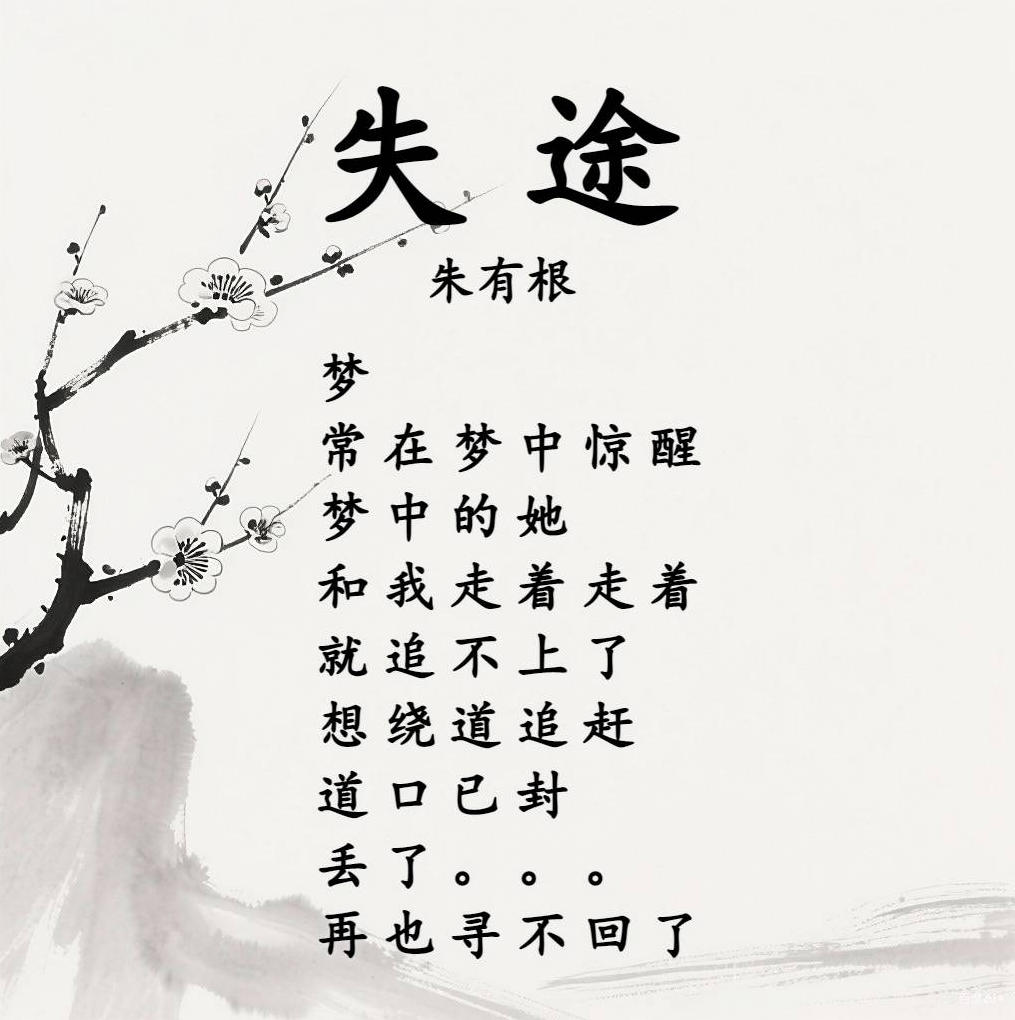 失途
朱有根
梦
常在梦中惊醒
梦中的她
和我走着走着
就追不上了
想绕道追赶
道口已封
丢了。。。
再也寻不回了